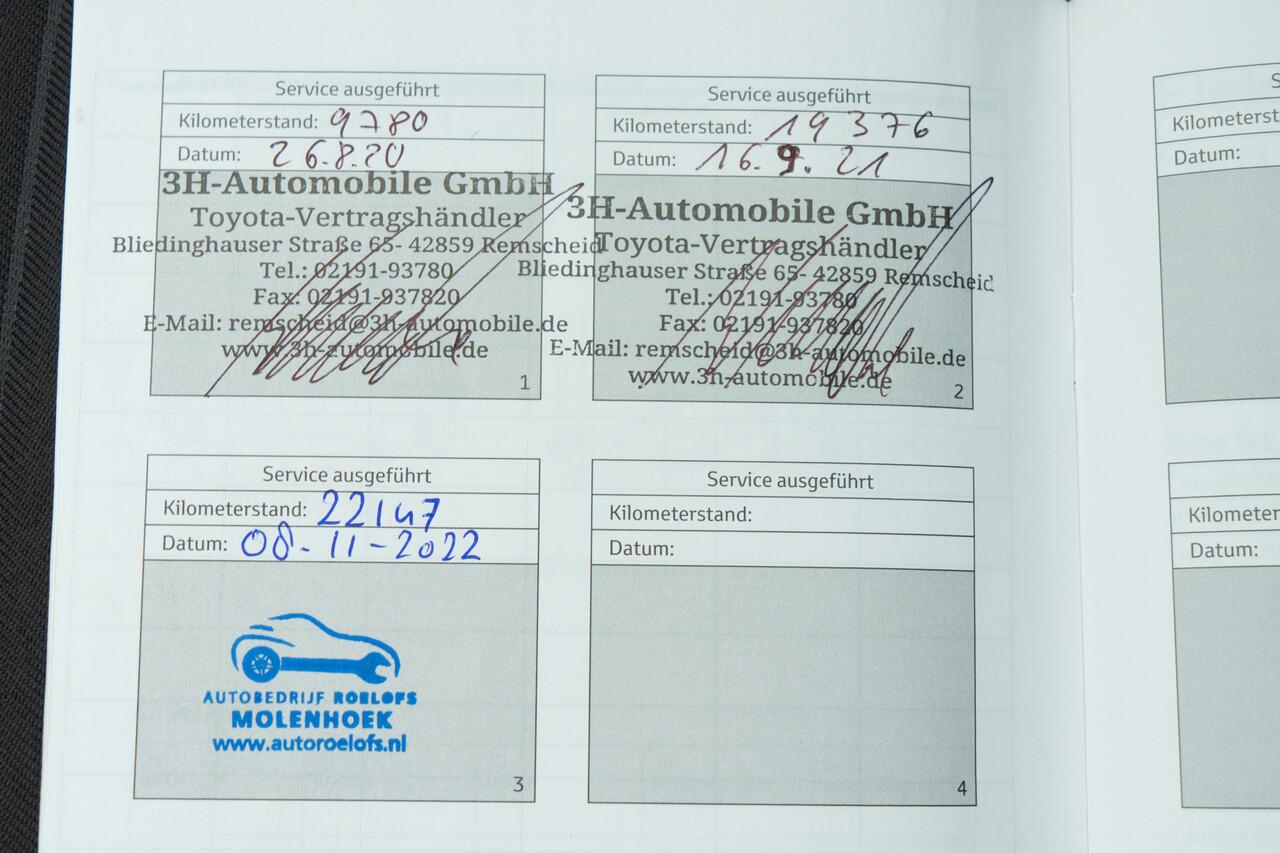 Service ausgeführt
Kilometerstand: 9780
Datum: 26.8.20
3H-Automobile GmbH
Toyota-Vertragshändler
Bliedinghauser Straße 65- 42859 Remscheid
Tel.: 02191-93780
Fax: 02191-937820
E-Mail: remscheid@3h-automobile.de
www.3h-automobile.de
1
Service ausgeführt
Kilometerstand: 19376
Datum: 16.9.21
3H-Automobile GmbH
Toyota-Vertragshändler
Bliedinghauser Straße 65- 42859 Remscheid
Tel.: 02191-93780
Fax: 02191-937820
E-Mail: remscheid@3h-automobile.de
www.3h-automobile.de
2
Service ausgeführt
Kilometerstand: 22147
Datum: 08-11-2022
AUTOBEDRIJF ROELOFS
MOLENHOEK
www.autoroelofs.nl
3
Service ausgeführt
Kilometerstand:
Datum:
4
Datum:
Datum: